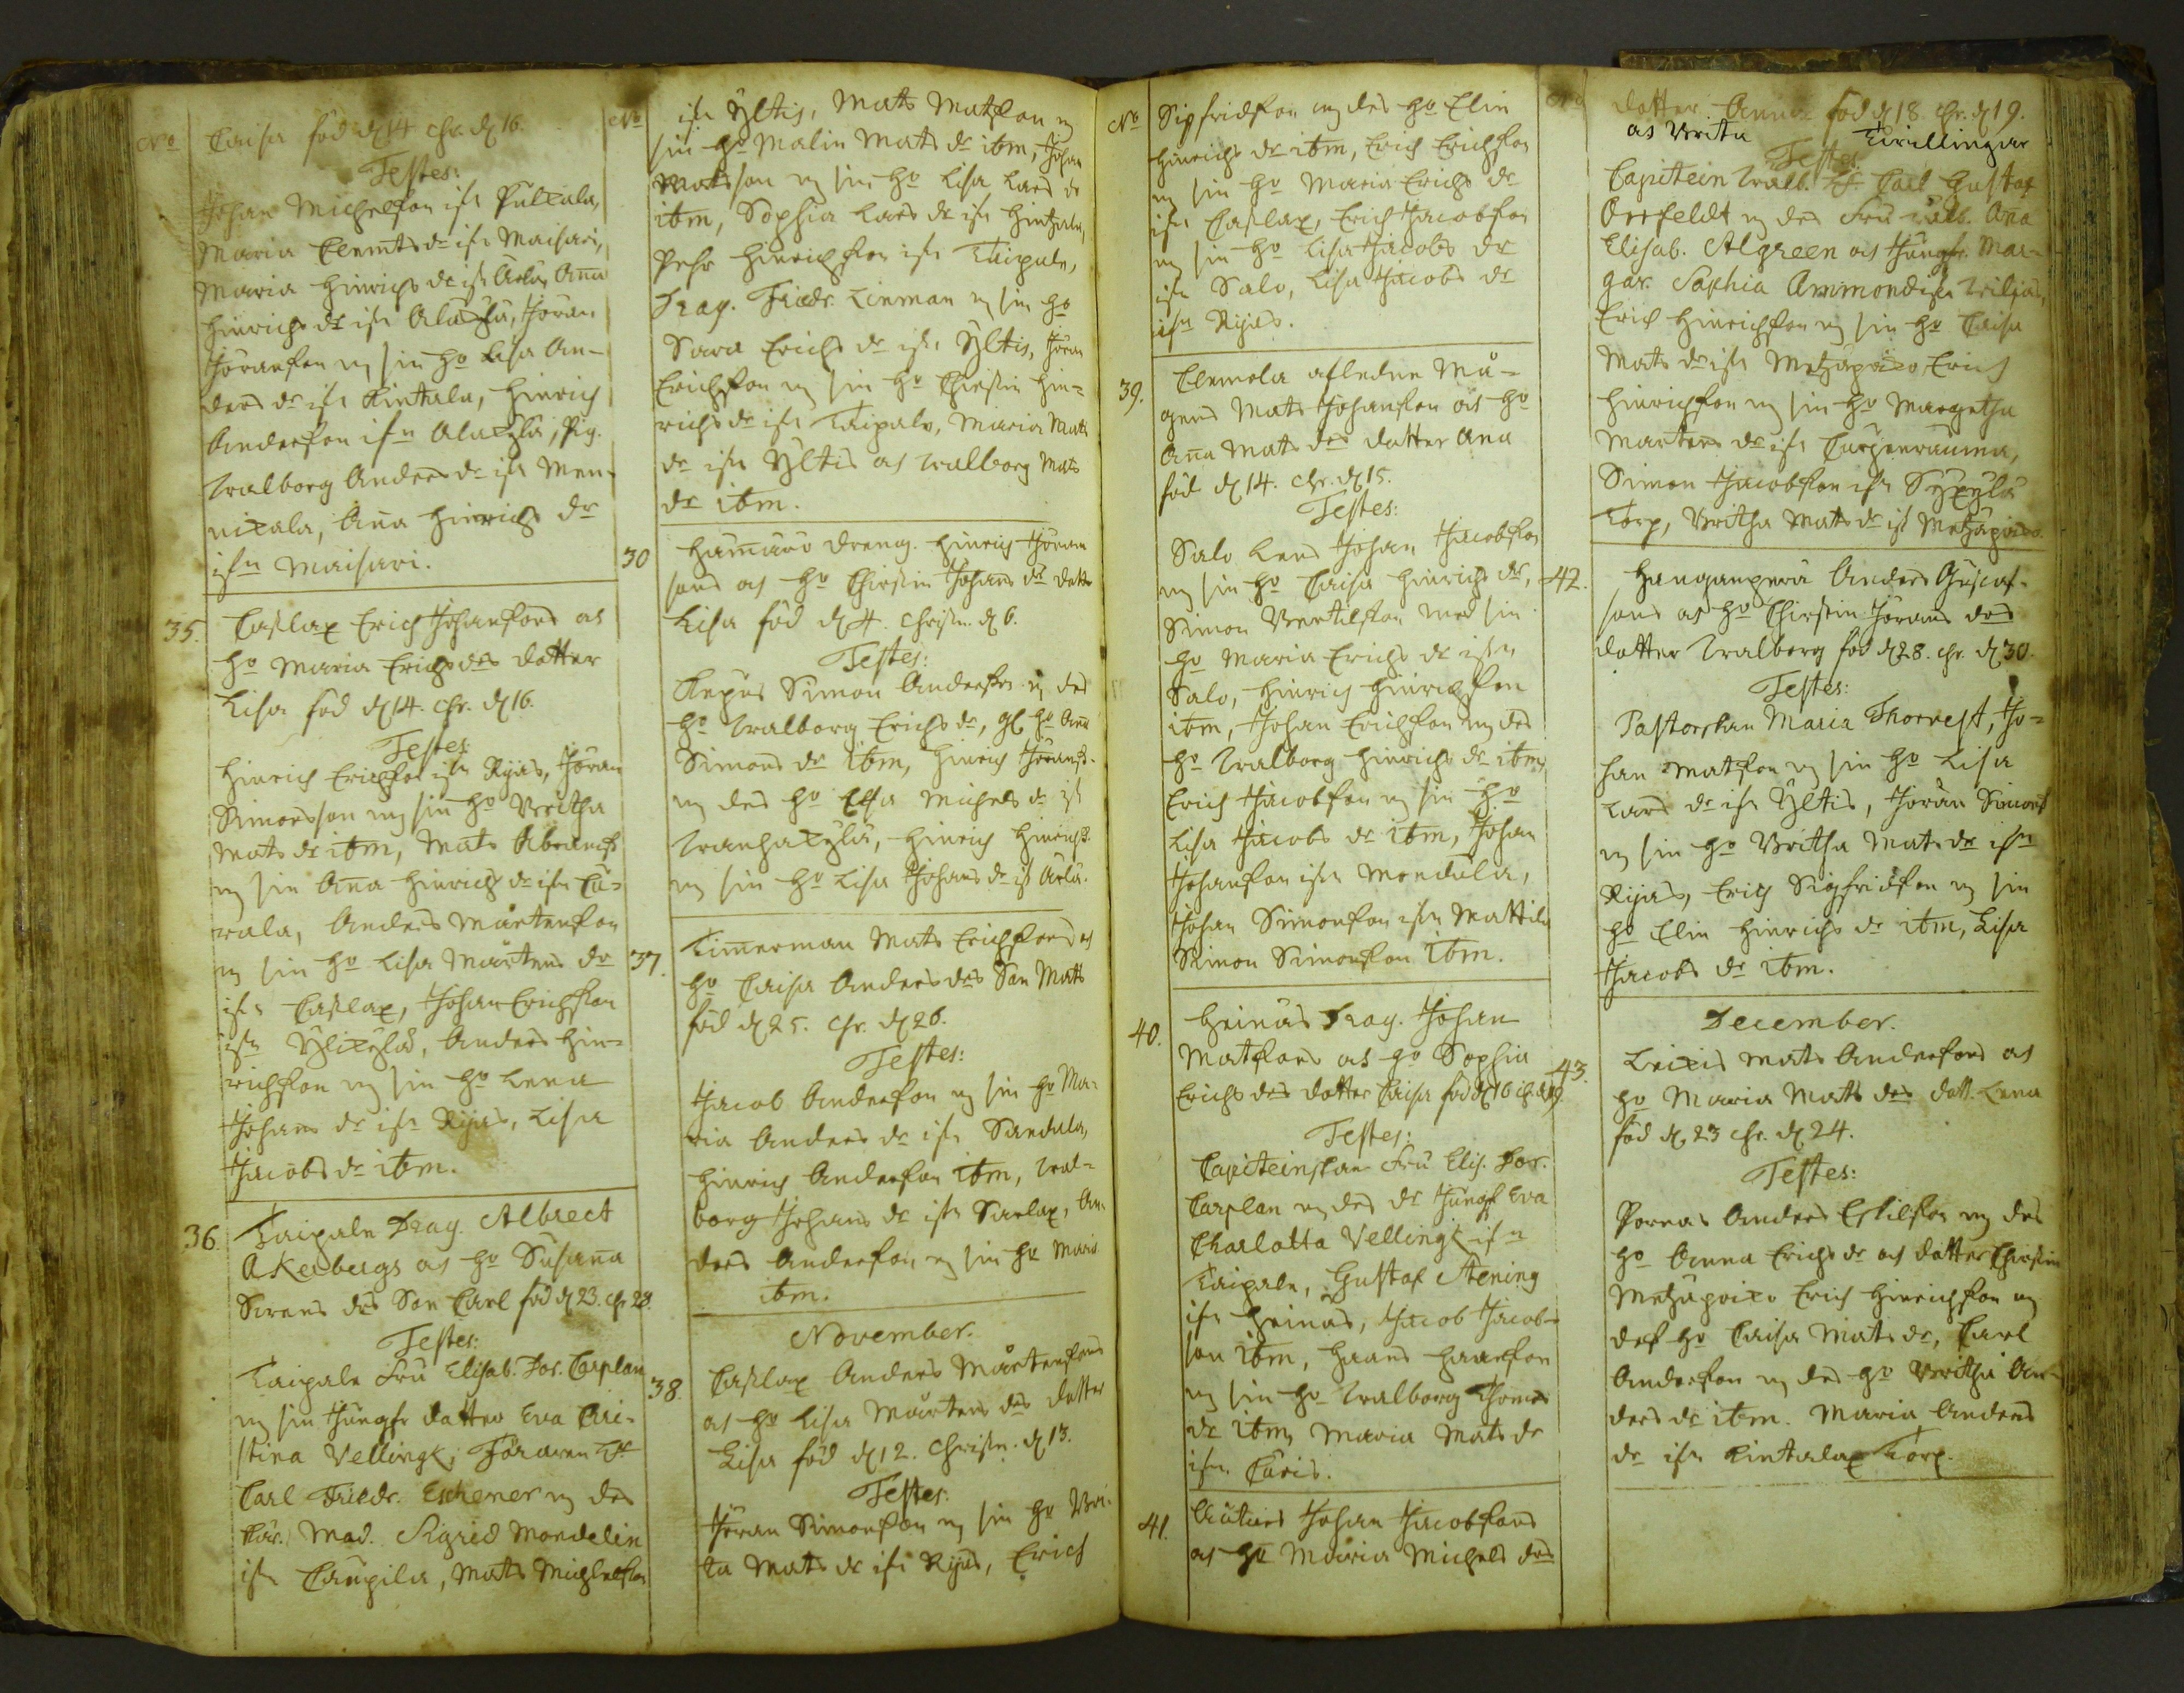 No Caisa född d 14 chr. d 16.
Testes:
Johan Michelson ifr Pulkala,
Maria Clemets dr ifr Maisari,
Maria Hinrichs dr ifr Anna
Hinrichs dr ifr Alakylä, Jöran
Jöranson m sin ho Lisa An-
ders dr ifr Kintala, Hinrich
Anderson ifn Alakylä, Pig.
Walborg Anders dr ifr Men-
nikala, Ana Hinrichs dr
ifn Maisari.
35. Caslax Erich Johansons as
ho Maria Erichs des dotter
Lisa född d 14. chr. d 16.
Testes
Hinrich Erichson ifn Rijas, Jöran
Simonsson m sin ho Britha
Mats dr itm, Mats Abramss
m sin Ana Hinrichs dr ifr
rala, Anders Mårtenson
m sin ho Lisa Mårtens dr
ifr Caslax, Johan Erichson
ifn Ylikylä, Anders Hin-
richson m sin ho Lena
Johans dr ifr Rijas, Lisa
Jacobs dr itm.
36. Taipale Drag. Albrect
Akerbergs as ho Susana
Sirens des Son Carl föd d 23. chr 28.
Testes:
Taipale Fru Elisab. Dor. Carplan
m sin Jungfr dotter Eva Chri-
stina Vellingk, Föraren
Carl Friedr. Eschener m des
Mad. Sigrid Mondelin
ifr Caupila, Mats Michelson
No ifr Yltis, Mats Matson m
sin ho Malin Mats dr itm, Johan
Matsson m sin ho Lisa Lars dr
itm, Sophia Lars dr ifr
Pehr Hinrichson ifr Taipale,
Drag. Friedr. Linman m sin ho
Sara Erichs dr ifr Yltis, Jöran
Erichson m sin ho Christin Hin-
richs dr ifr Taipale, Maria Mats
dr ifr Yltis as Walborg Mats
dr itm.
30 Hamaro dreng. Hinrich Jöran
sons as ho Christin Johans des dotter
Lisa född d 4. Christn. d 6.
Testes:
Simon Anderson m des
ho Walborg Erichs dr, gl. ho Ana
Simons dr itm, Hinrich Jöranss.
m des ho Elsa Michels dr ifr
Wanhakylä, Hinrich Hinrichss.
m sin ho Lisa Johans dr ifr
37. Timerman Mats Erichsons as
ho Caisa Anders des Son Mats
född d 25. chr. d 26.
Testes:
Jacob Anderson m sin ho Ma-
ria Anders dr ifr Sandala,
Hinrich Anderson itm, Wal-
borg Johans dr ifr Sarlax, An-
ders Anderson m sin ho Maria
itm.
November.
38. Caslax Anders Mårtensons
as ho Lisa Mårtens des dotter
Lisa född d 12. Christn. d 13.
Testes:
Jöran Simonson m sin ho Bri-
ta Mats dr ifr Rijas, Erich
No Sigfridson m des ho Elin
Hinrichs dr itm, Erich Erichson
m sin ho Maria Erichs dr
ifr Caslax, Erich Jacobson
m sin ho Lisa Jacobs dr
ifr Salo, Lisa Jacobs dr
ifn Rijas.
39. Clemola afledne Må-
gens Mats Johanson as ho
Ana Mats des dotter Ana
född d 14. chr. d 15.
Testes:
Salo Lens Johan Jacobson
m sin ho Caisa Hinrichs dr,
Simon Bertilson med sin
ho Maria Erichs dr ifn
Salo, Hinrich Hinrichson
itm, Johan Erichson m des
ho Walborg Hinrichs dr itm,
Erich Jacobson m sin ho
Lisa Jacobs dr itm, Johan
Johanson ifn Mondola,
Johan Simonson ifn Mattila
Simon Simonson itm.
40. Heinäs Drag. Johan
Matsons as ho Sophia
Erichs des dotter Caisa född d 16 ch d 19
Testes:
Capiteinskan Fru Elis. Dor.
Carplan m des dr Jungf Eva
Charlotta Vellingk ifn
Taipale, Gustaf Stening
ifr Heinäs, Jacob Jacob-
son itm, Hans Hanson
m sin ho Walborg Thomas
dr itm, Maria Mats dr
ifn Curis.
41. Johan Jacobsons
as ho Maria Michels des
No dotter Anna född d 18. chr. d 19.
as Brita Twillingar
Testes:
Capitein Walb. H. Carl Gustaf
Orrfeldt m des Fru walb. Ana
Elisab. Algreen as Jungfr. Mar-
gar. Sophia Ammondt ifr Wiljas,
Erich Hinrichson m sin ho Caisa
Mats dr ifr Metzäpoiko, Erich
Hinrichson m sin ho Margetha
Martens dr ifr
Simon Jacobson ifr Syrjylä
Torp, Britha Mats dr ifr Metzäpoiko.
42. Hanganperä Anders Gustaf-
sons as ho Christin Jörans des
dotter Walborg född d 28. chr. d 30.
Testes:
Pastorskan Maria Thornest, Jo-
han Matson m sin ho Lisa
Lars dr ifr Yltis, Jöran Simons
m sin ho Britha Mats dr ifn
Rijas, Erich Sigfridson m sin
ho Elin Hinrichs dr itm, Lisa
Jacobs dr itm.
December.
43. Leikis Mats Andersons as
ho Maria Mats des dott. Lena
född d. 23 chr. d. 24.
Testes:
Pornas Anders Eskilson m des
ho Anna Erichs dr as dotter Christin
Metzäpoiko Erich Hinrichson m
des ho Caisa Mats dr, Carl
Anderson m des ho Britha An-
ders dr itm. Maria Anders
dr ifr Kintalax Torp.